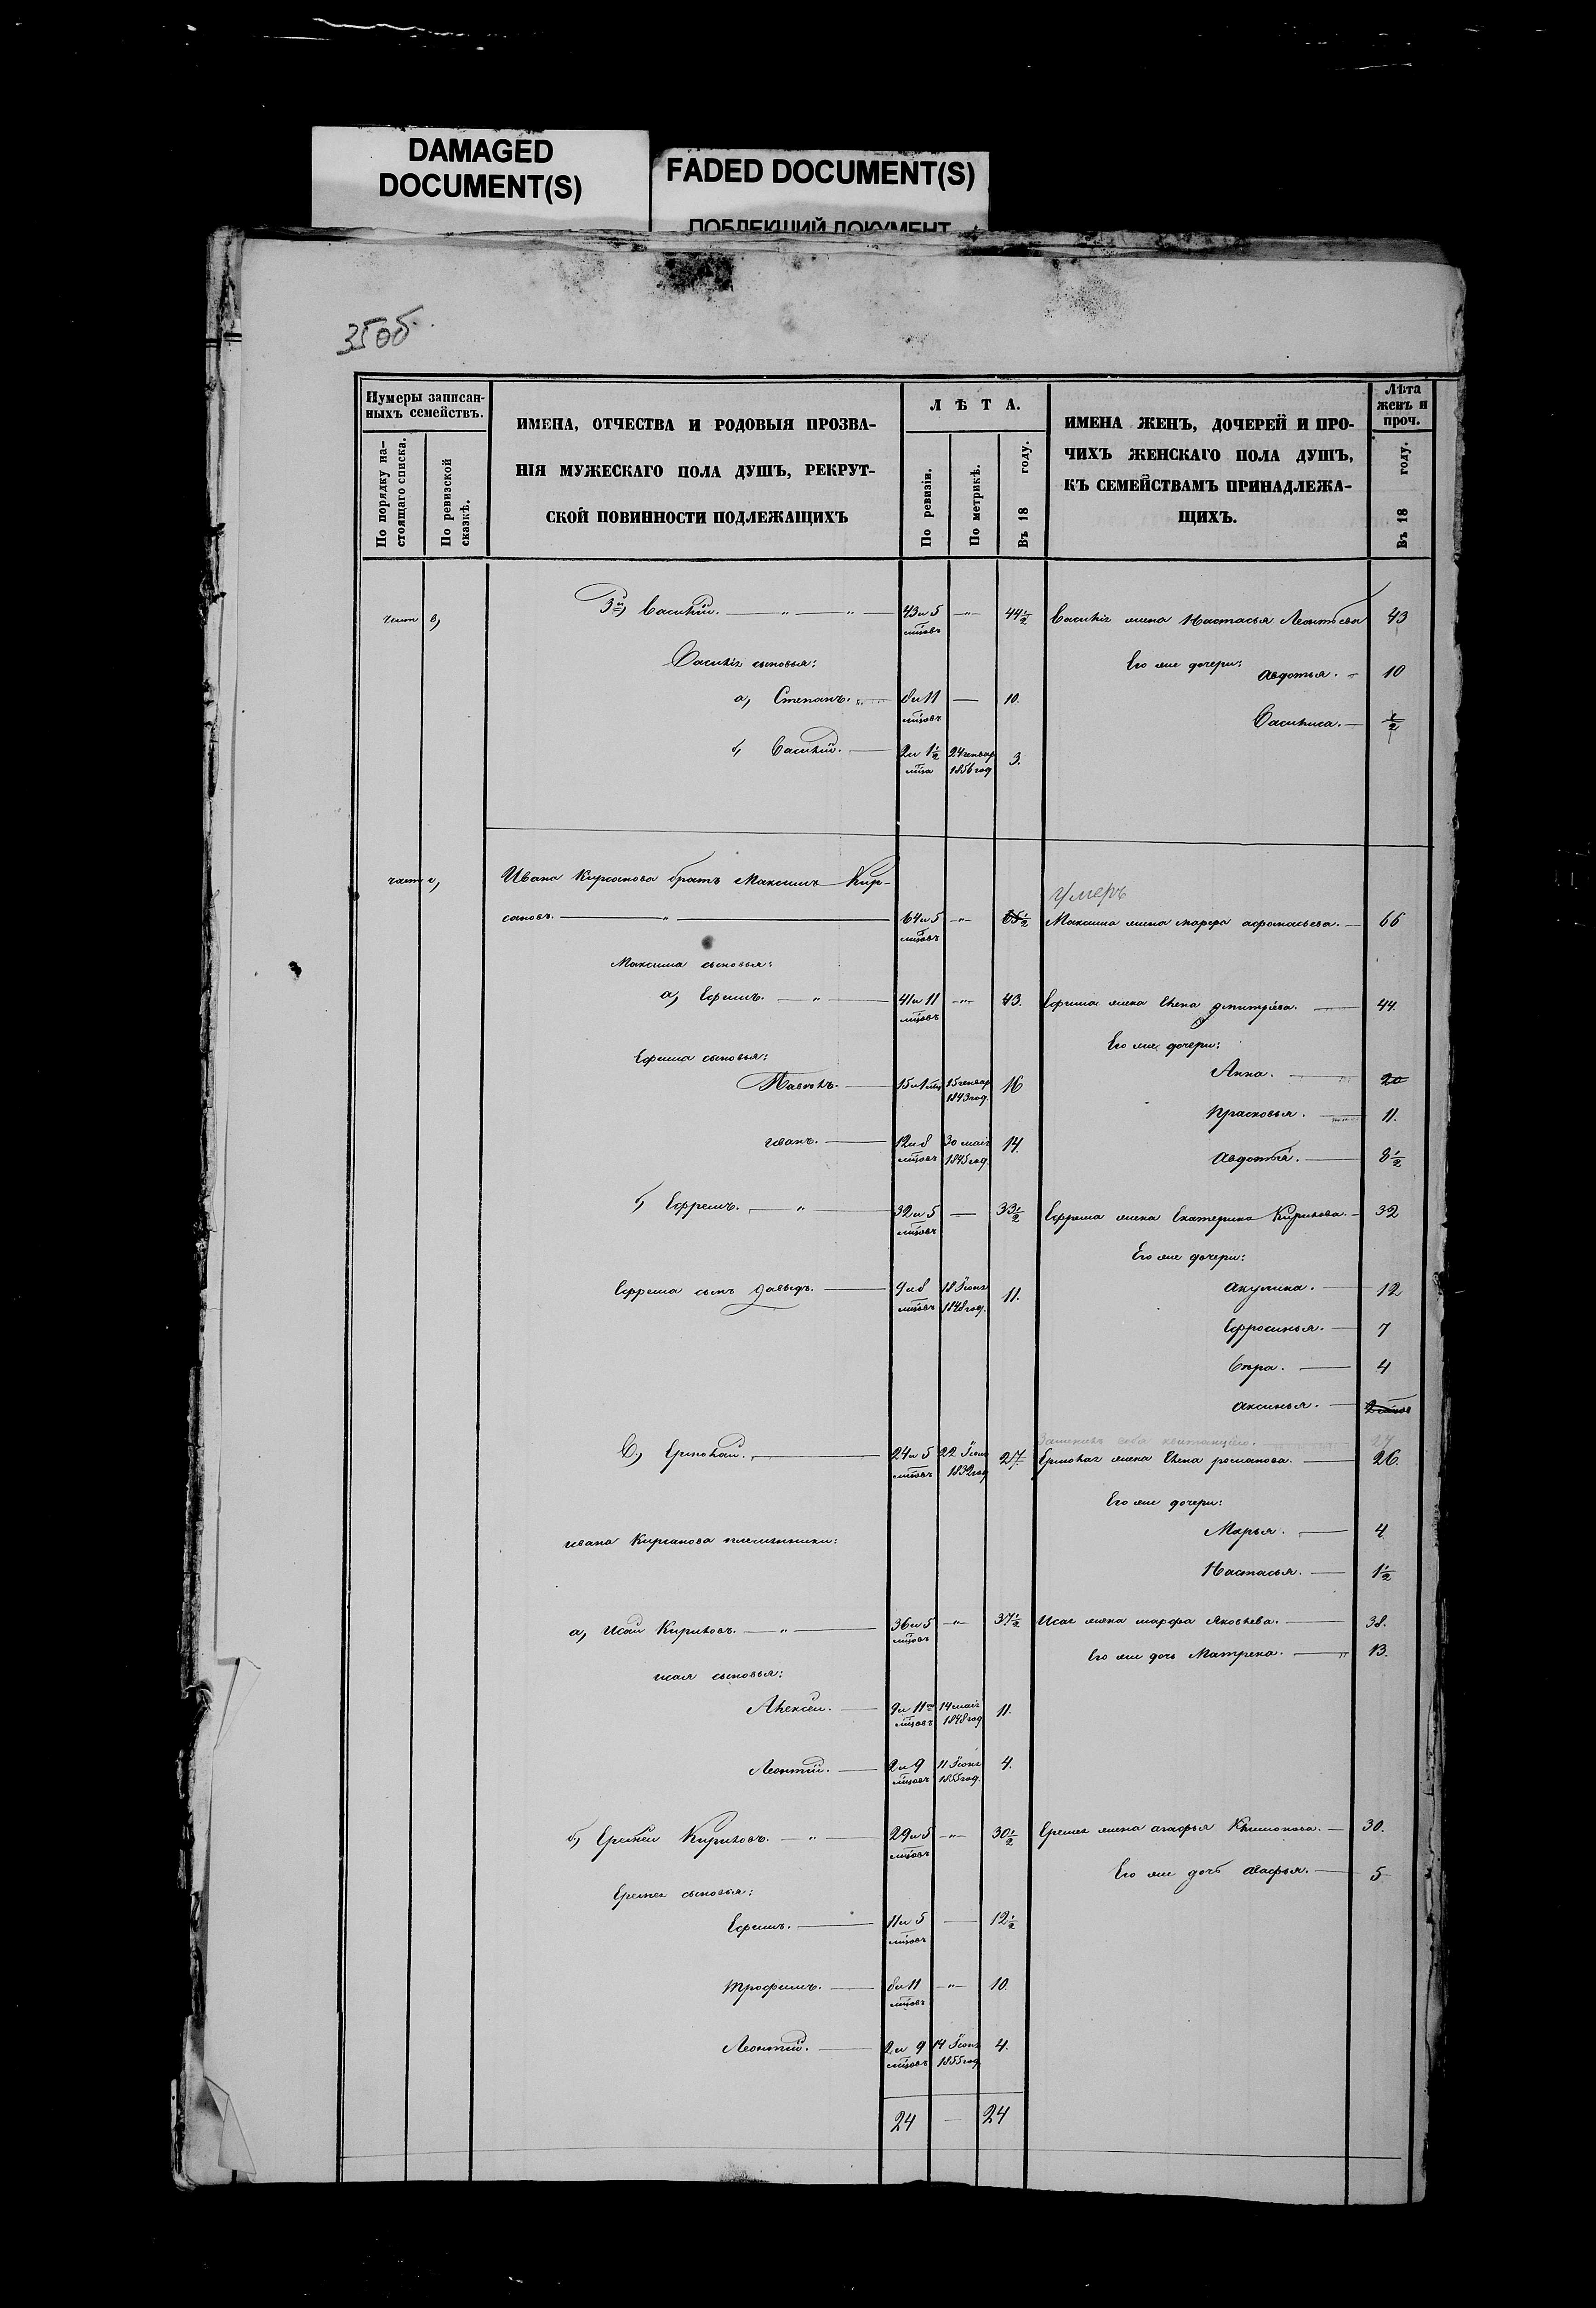 DAMAGED
DOCUMENT(S)
FADED DOCUMENT(S)
ПОБЛЕКШИЙ ДОКУМЕНТ
35об.
Нумеры записан-
ныхъ семействъ.
По порядку на-
стоящаго списка.
По ревизской
сказкѣ.
ИМЕНА, ОТЧЕСТВА И РОДОВЫЯ ПРОЗВА-
НІЯ МУЖЕСКАГО ПОЛА ДУШЪ, РЕКРУТ-
СКОЙ ПОВИННОСТИ ПОДЛЕЖАЩИХЪ
ЛѢТА.
По ревизіи.
По метрикѣ.
Въ 18 году.
ИМЕНА ЖЕНЪ, ДОЧЕРЕЙ И ПРО-
ЧИХЪ ЖЕНСКАГО ПОЛА ДУШЪ,
КЪ СЕМЕЙСТВАМЪ ПРИНАДЛЕЖА-
ЩИХЪ.
Лѣта
женъ и
проч.
Въ 18 году.
3й, Василій. — " — " — 43 и 5 — " — 44½ Василія жена Настасья Леонтьева 43
мцовъ
Василія сыновья: Его же дочери:
Авдотья. — 10
а, Степанъ. 8 и 11 — 10.
мцовъ Василиса. — ½
б, Василій. — 2 и 1½ 24 генвар 3.
мца 1856 год
Ивана Кирсанова братъ Максимъ Кир-
Умеръ
сановъ. — " — 64 и 5 — " — 65½ Максима жена марфа афонасьева. — 66
мцовъ
Максима сыновья:
а, Ефимъ. — " — 41 и 11 — " — 43. Ефима жена Елена дмитріева. — 44.
мцовъ
Ефима сыновья: Его же дочери:
Анна. — 20
Павелъ. — 15 и 1 мц 15 генвар 16
1843 год.
Прасковья. — 11.
иванъ. — 12 и 8 30 маія 14.
мцовъ 1845 год.
Авдотья. — 8½
б, Ефремъ. — " — 32 и 5 — 33½ Ефрема жена Екатерина Кирилова. — 32
мцовъ
Его же дочери:
Ефрема сынъ давыдъ. — 9 и 8 18 Іюня 11. Акулина. — 12
мцовъ 1848 год.
Ефросинья. — 7
Вѣра. — 4
Аксинья. —
В, Ермолай. — 24 и 5 22 Іюня 27. Ермолая жена Елена романова. — 26.
мцовъ 1832 год
Его же дочери:
Марья. — 4
ивана Кирсанова племянники:
Настасья. — 1½
а, Исай Кириловъ. — " — 36 и 5 — " — 37½ Исая жена марфа Яковлева. — 38.
мцовъ
Его же дочь Матрена. — 13.
исая сыновья:
Алексей. — 9 и 11 14 маія 11.
мцовъ 1848 год
Леонтій. — 2 и 9 11 Іюня 4.
мцовъ 1855 год.
б, Еремей Кириловъ. — " — 29 и 5 — " — 30½ Еремея жена агафья — 30.
мцовъ
Его же дочь — 5
Еремея сыновья:
Ефимъ. — 11 и 5 — 12½
мцовъ
трофимъ. — 8 и 11 — " — 10.
мцовъ
Леонтій. — 2 и 9 14 Іюня 4.
мцовъ 1855 год
24 — 24